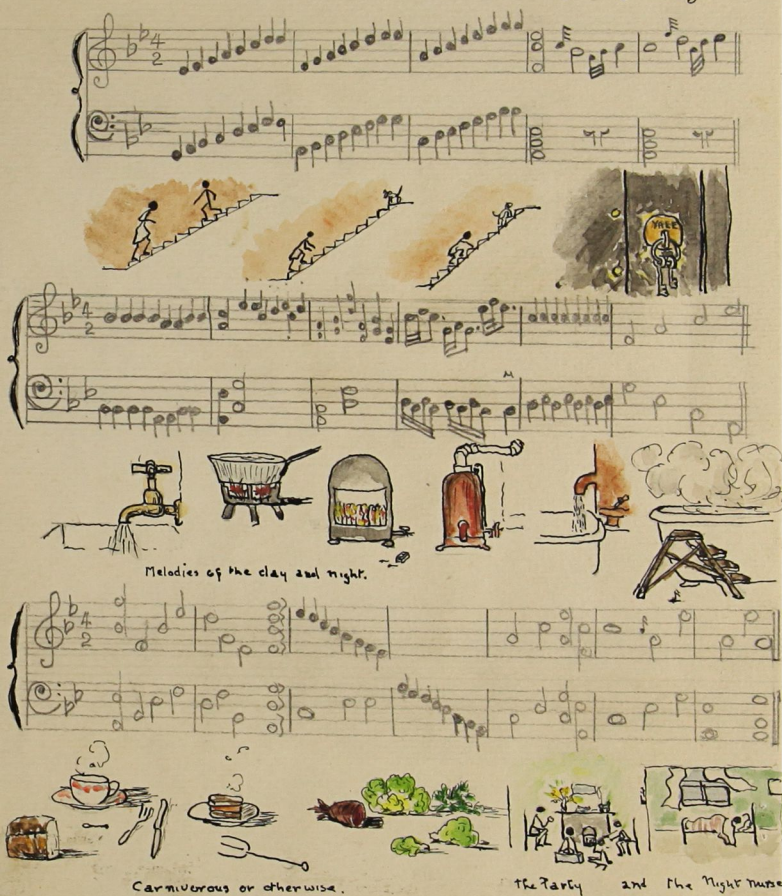 4
2
YALE
4
2
Melodies of the day and night.
4
2
Carniverous or otherwise.
the Party and the Night nurse